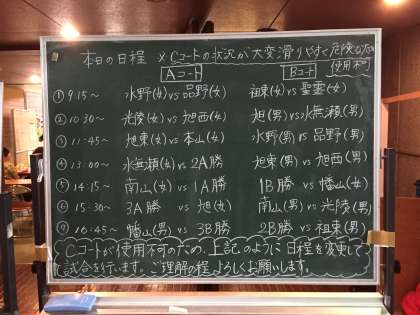 本日の日程 ※Cコートの状況が大変滑りやすく危険なため使用不可
Aコート Bコート
① 9:15〜 水野(女) vs 品野(女) 祖東(女) vs 聖霊(女)
② 10:30〜 光陵(女) vs 旭西(女) 旭(男) vs 水無瀬(男)
③ 11:45〜 旭東(女) vs 本山(女) 水野(男) vs 品野(男)
④ 13:00〜 水無瀬(女) vs 2A勝 旭東(男) vs 旭西(男)
⑤ 14:15〜 南山(女) vs 1A勝 1B勝 vs 幡山(女)
⑥ 15:30〜 3A勝 vs 旭(女) 南山(男) vs 光陵(男)
⑦ 16:45〜 幡山(男) vs 3B勝 2B勝 vs 祖東(男)
Cコートが使用不可のため、上記のように日程を変更して
試合を行います。ご理解の程よろしくお願いします。